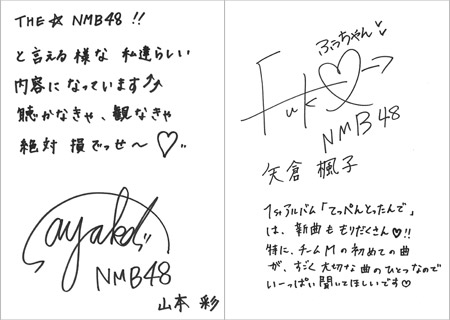 THE☆NMB48!!
と言える様な 私達らしい
内容になっています⤴⤴
聴かなきゃ、観なきゃ
絶対 損でっせ〜♡!!
Sayaka!!
NMB48
山本 彩
ふぅちゃん♡
Fuk♡→
NMB48
矢倉 楓子
1stアルバム「てっぺんとったんで」
は、新曲ももりだくさん♡!!
特に、チームMの初めての曲
が、すごく大切な曲のひとつなので
いーっぱい聞いてほしいです♡